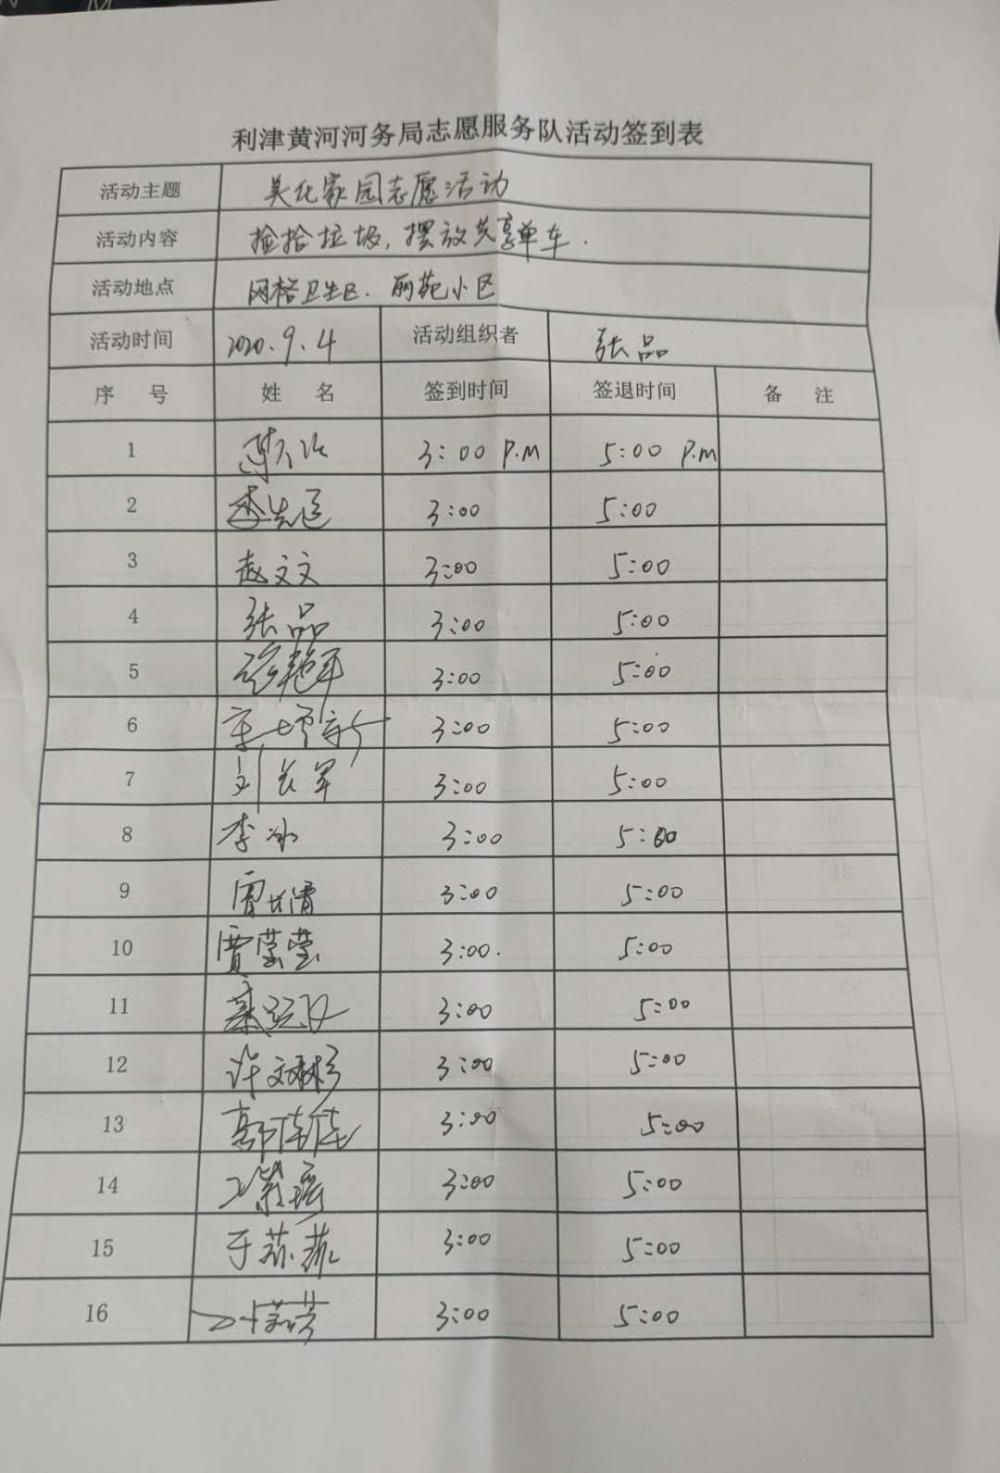 利津黄河河务局志愿服务队活动签到表
活动主题 美化家园志愿活动
活动内容 捡拾垃圾,摆放共享单车.
活动地点 网格卫生区. 丽苑小区
活动时间 2020.9.4 活动组织者 张品
序 号 姓 名 签到时间 签退时间 备 注
1 3:00 P.M 5:00 P.M
2 李先臣 3:00 5:00
3 赵文文 3:00 5:00
4 张品 3:00 5:00
5 3:00 5:00
6 3:00 5:00
7 刘长军 3:00 5:00
8 李冰 3:00 5:00
9 3:00 5:00
10 贾莹莹 3:00. 5:00
11 3:00 5:00
12 许文彬 3:00 5:00
13 郭佳佳 3:00 5:00
14 3:00 5:00
15 于菲菲 3:00 5:00
16 3:00 5:00